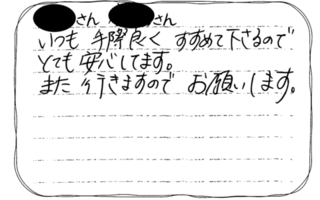 さん さん
いつも 手際良く すすめて下さるので
とても 安心してます。
また 行きますので お願いします。